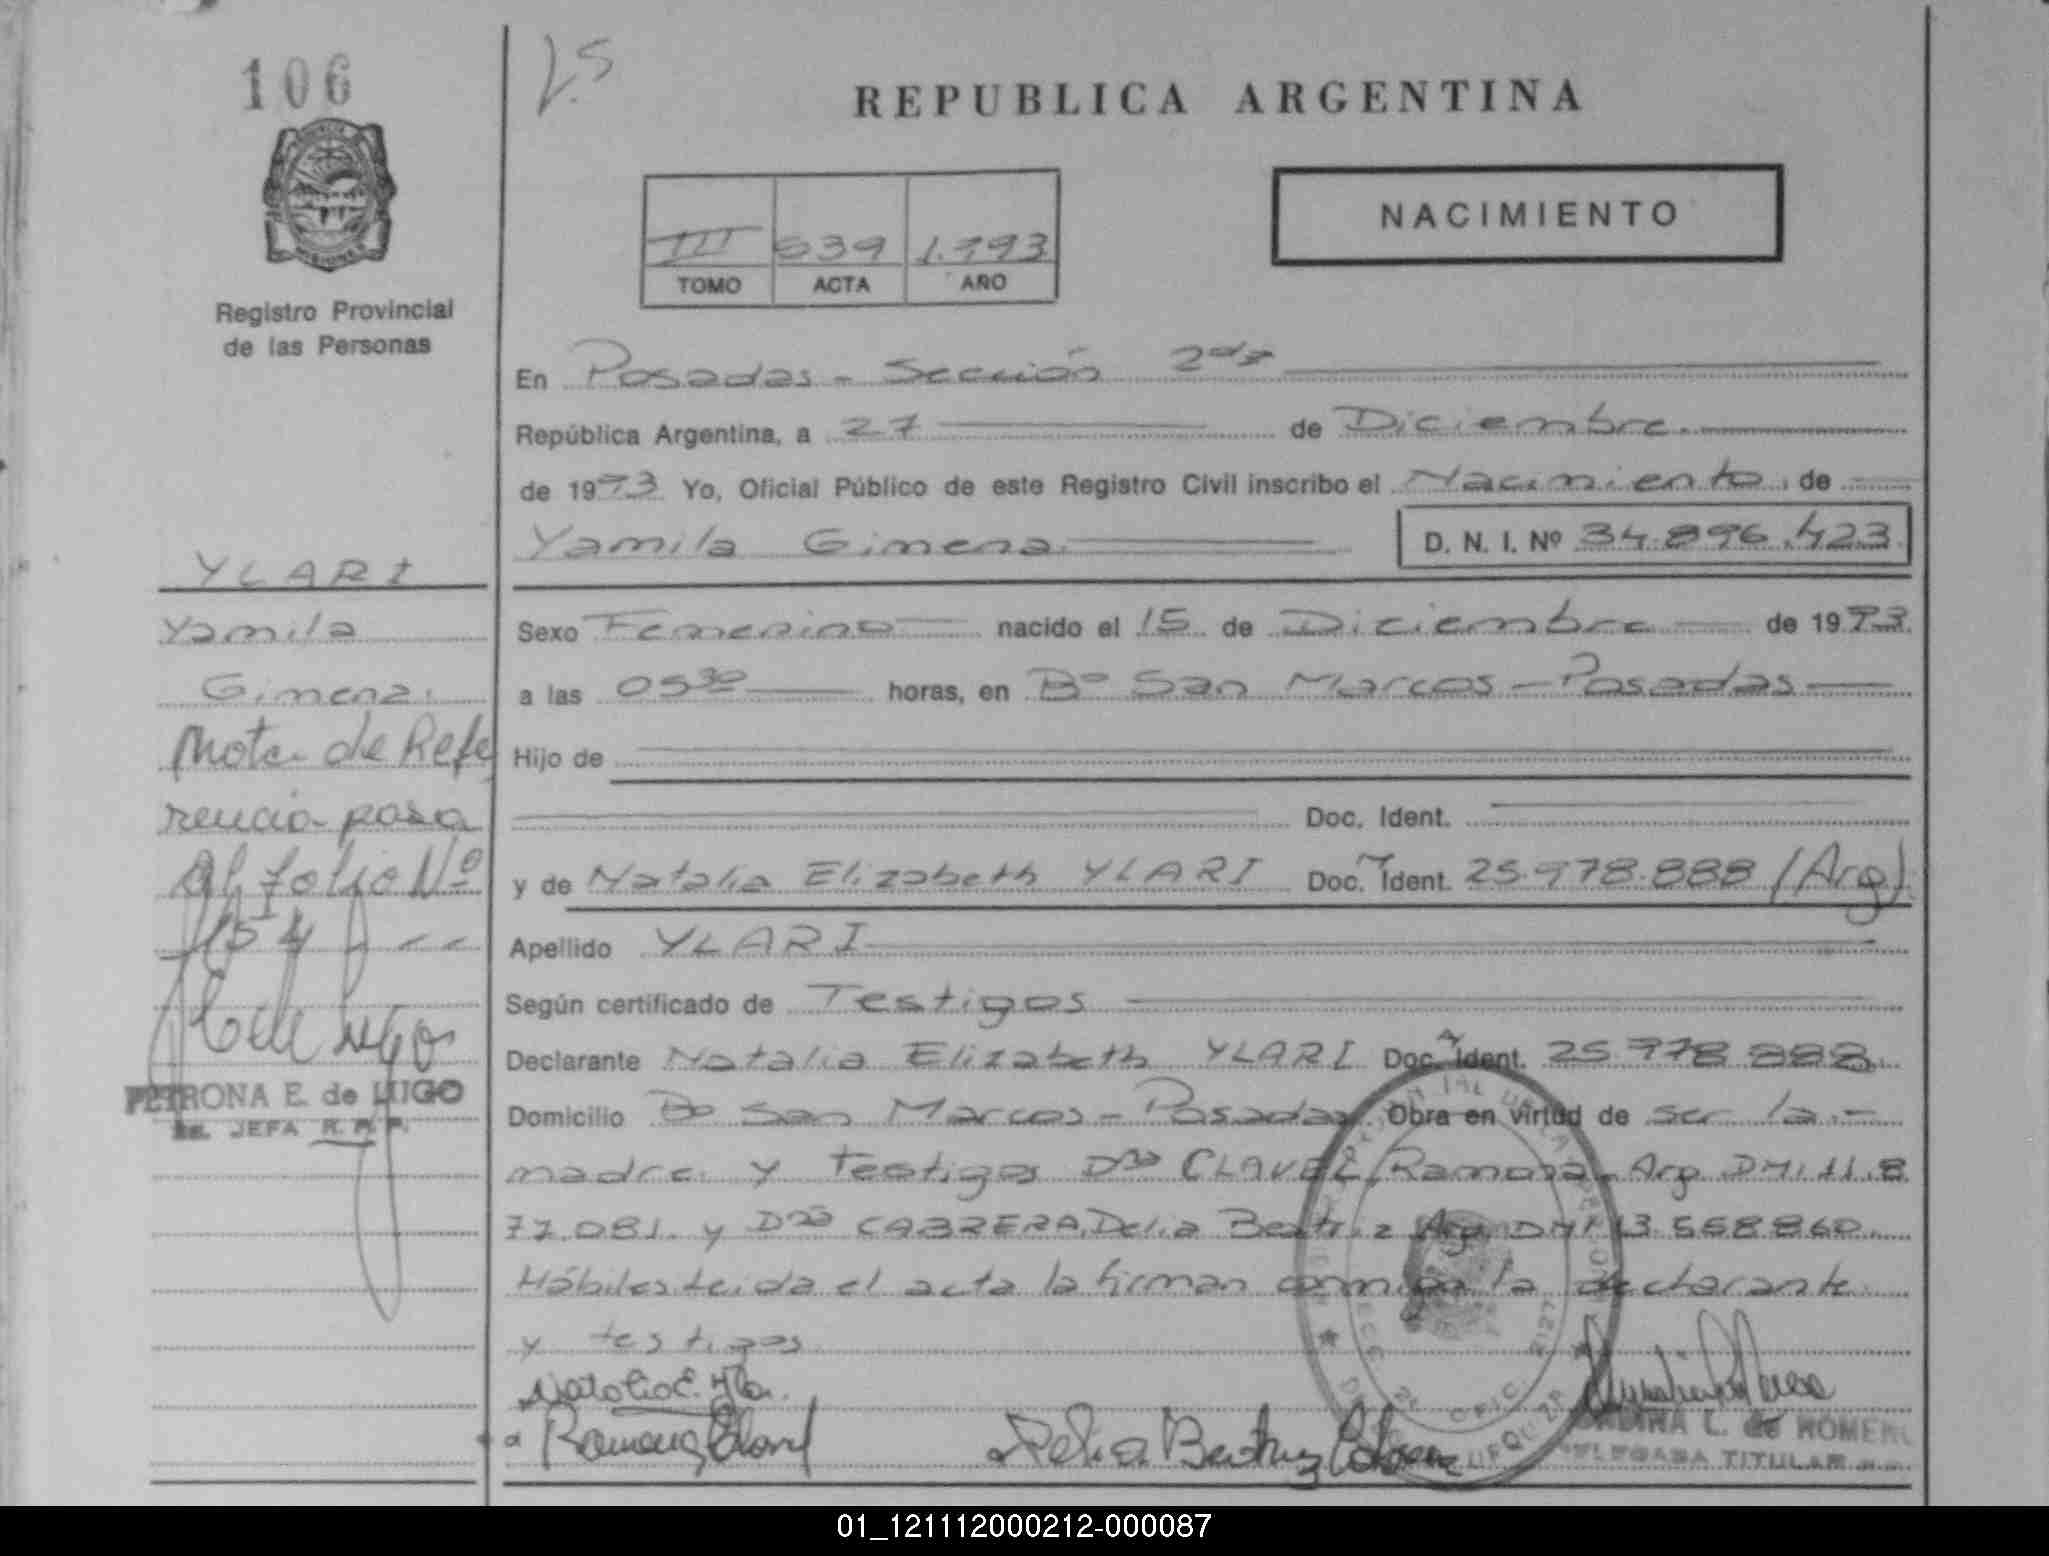 106
REPUBLICA ARGENTINA
NACIMIENTO
III 639 1.993
TOMO ACTA AÑO
Registro Provincial
de las Personas
En Posadas - Sección 2da
República Argentina, a 27 de Diciembre.
de 1993 Yo, Oficial Público de este Registro Civil inscribo el Nacimiento de
Yamila Gimena. D. N. I. Nº 34.896.423
YLARI
Yamila
Gimena.
Nota de Refe
rencia pasa
al folio Nº
154
PETRONA E. de LUGO
JEFA R.P.P.
Sexo Femenino nacido el 15 de Diciembre de 1993
a las 05 30 horas, en Bº San Marcos - Posadas
Hijo de
Doc. Ident.
y de Natalia Elizabeth YLARI Doc. Ident. 25.978.888 (Arg).
Apellido YLARI
Según certificado de Testigos
Declarante Natalia Elizabeth YLARI Doc. Ident. 25.978.888.
Domicilio Bº San Marcos - Posadas Obra en virtud de ser la.-
madre. y Testigos Dña CLAVEL, Ramona - Arg. DNI. 11.8
77.081. y Dña CABRERA, Delia Beatriz Arg. DNI 13.558.860.
Hábiles Leida el acta la firman conmigo la declarante
y testigos
Natalia E. Yla.
Ramona Clavel Delia Beatriz
L. de ROMERO
DELEGADA TITULAR
01_121112000212-000087